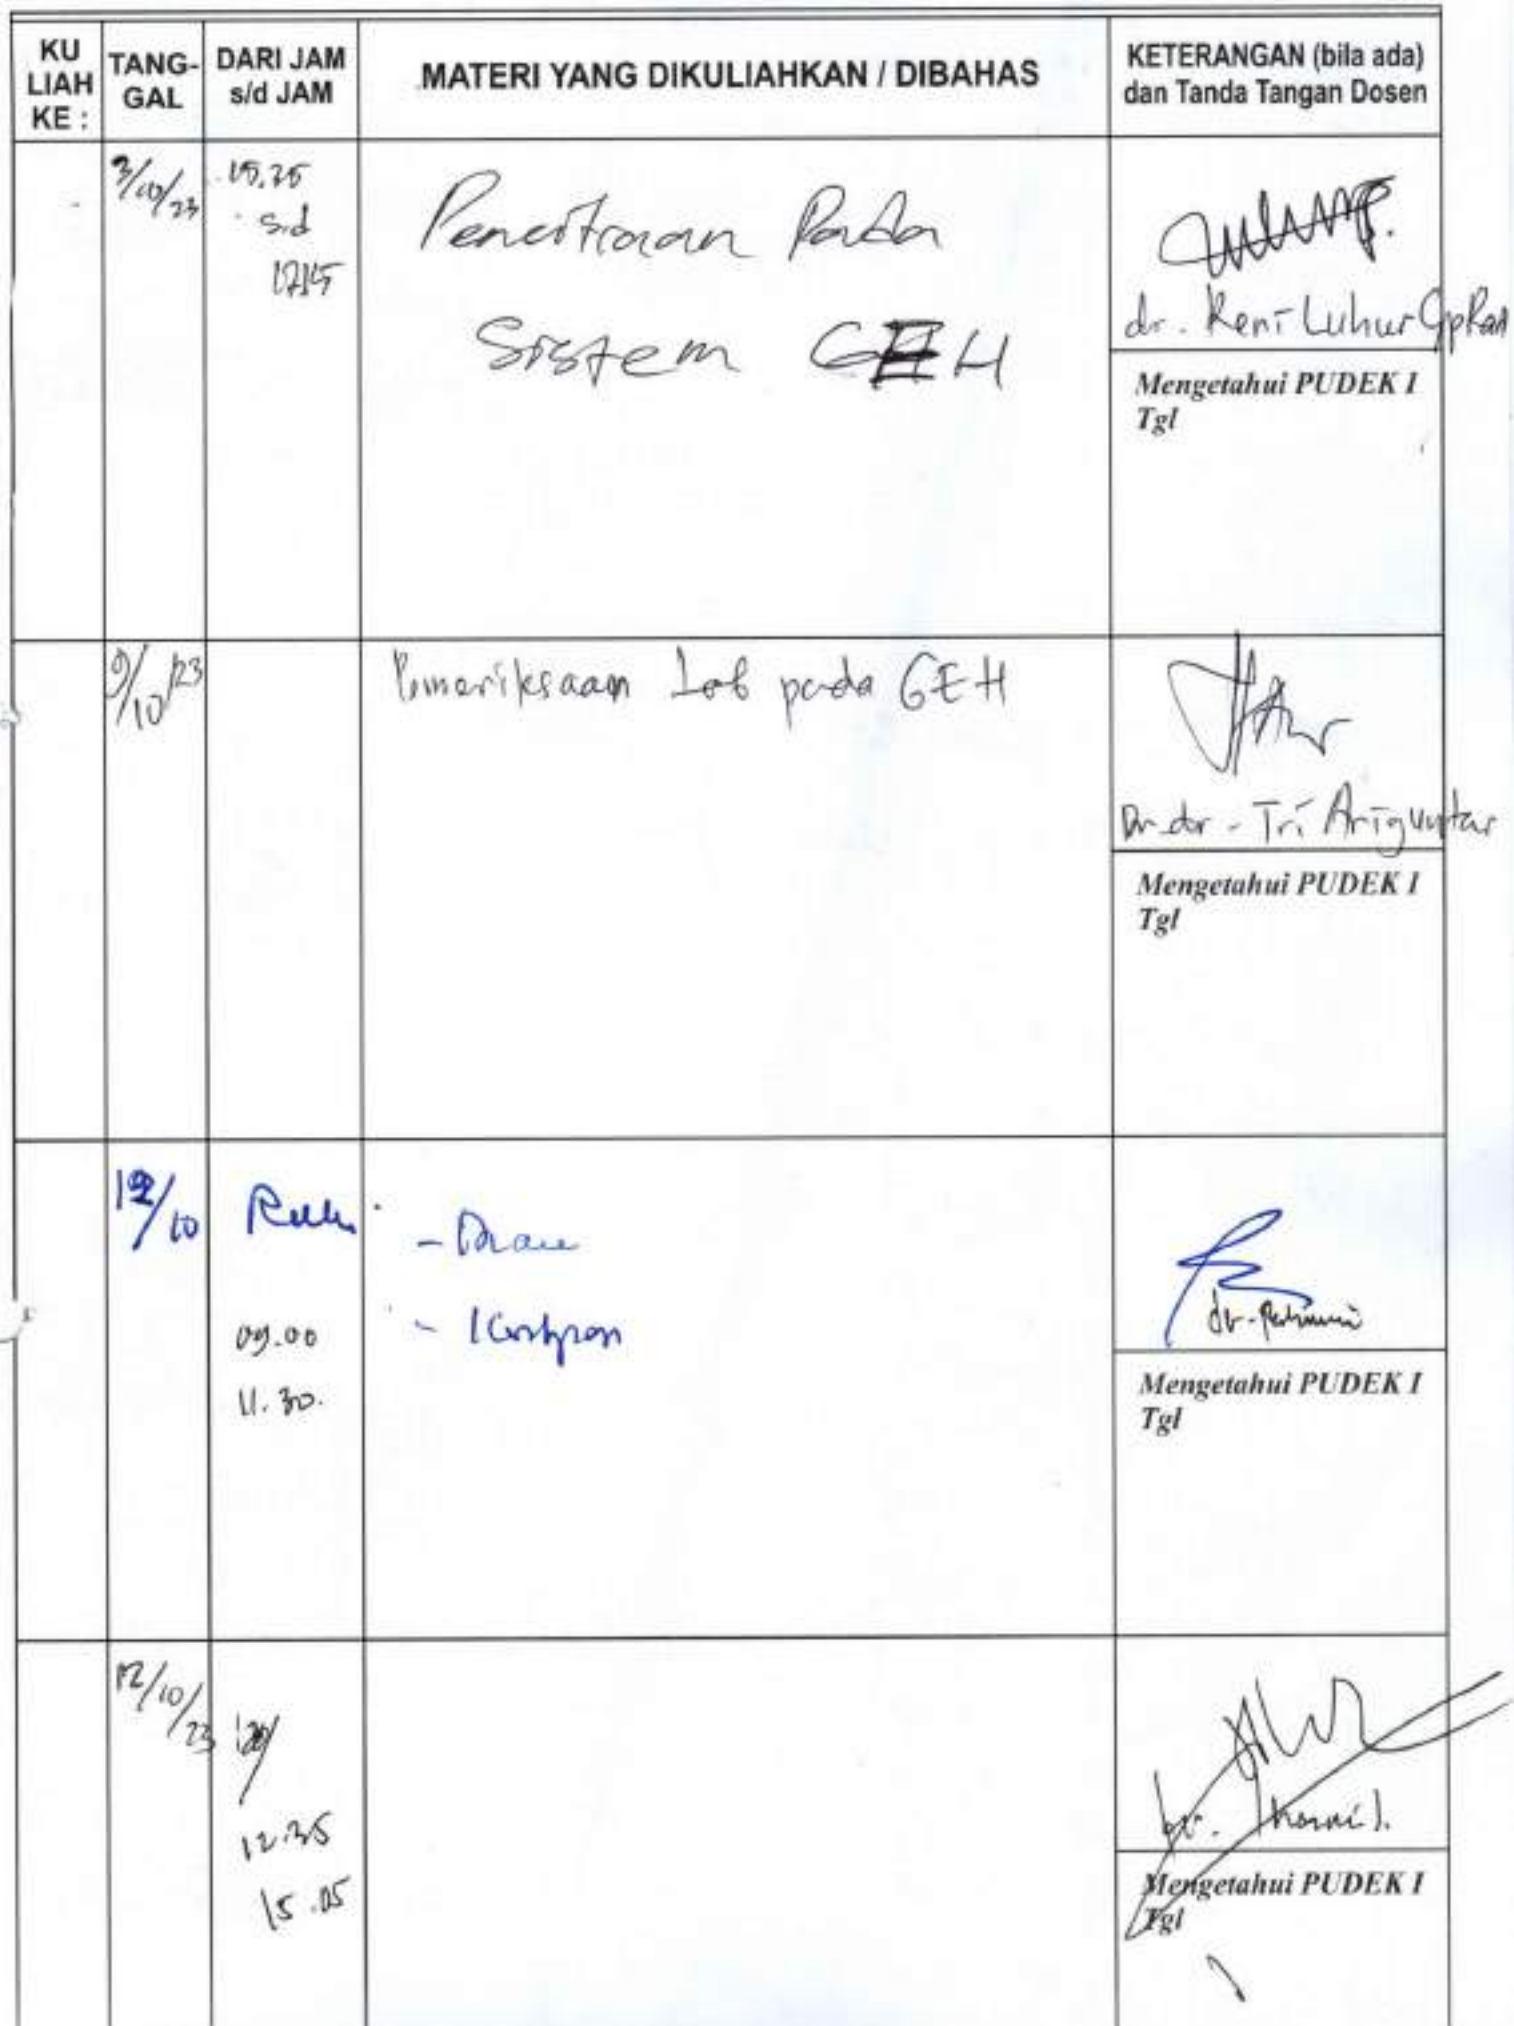 KU
LIAH
KE :
TANG-
GAL
DARI JAM
s/d JAM
MATERI YANG DIKULIAHKAN / DIBAHAS
KETERANGAN (bila ada)
dan Tanda Tangan Dosen
3/10/23
15.25
s.d
1715
Pencitraan Pada
Sistem GEH
dr. Reni Luhur SpRad
Mengetahui PUDEK I
Tgl
9/10/23
Pemeriksaan Lab pada GEH
Dr. dr - Tri
Mengetahui PUDEK I
Tgl
12/10
09.00
11.30.
- Diare
-
dr.
Mengetahui PUDEK I
Tgl
12/10/23
12.35
15.05
Mengetahui PUDEK I
Tgl